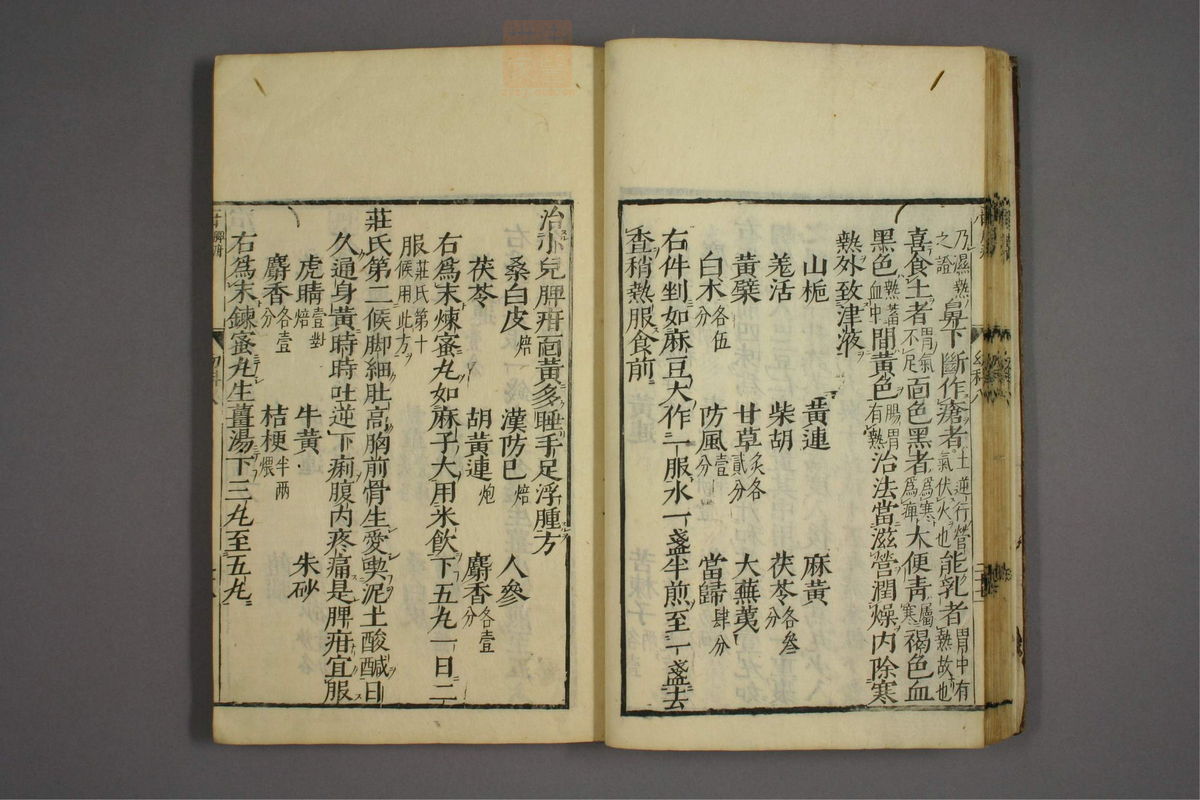 乃濕熱之證鼻下斷作瘡者土逆行營氣伏火也能乳者胃中有熱故也
喜食土者胃氣不足面色黑者爲寒爲痺大便靑寒屬褐色血
黑色熱蓄血中間黃色腸胃有熱治法當滋營潤燥內除寒
熱外致津液
山梔 黃連 麻黃
羗活 柴胡 茯苓各叁分
黃蘗 甘草炙各貳分 大蕪荑
白朮各伍 防風壹分 當歸肆分
右件剉如麻豆大作一服水一盞半煎至一盞去
渣稍熱服食前
治小兒脾疳面黃多睡手足浮腫方
桑白皮焙 漢防已焙 人參
茯苓 胡黃連炮 麝香各壹分
右爲末煉蜜丸如麻子大用米飮下五九一日二
服莊氏第十候用此方
莊氏第二候脚細肚高胸前骨生愛喫泥土酸鹹日
久通身黃時時吐逆下痢腹內疼痛是脾疳宜服
虎睛壹對焙 牛黃 朱砂
麝香各壹分 桔梗半兩煨
右爲末鍊蜜丸生薑湯下三丸至五丸